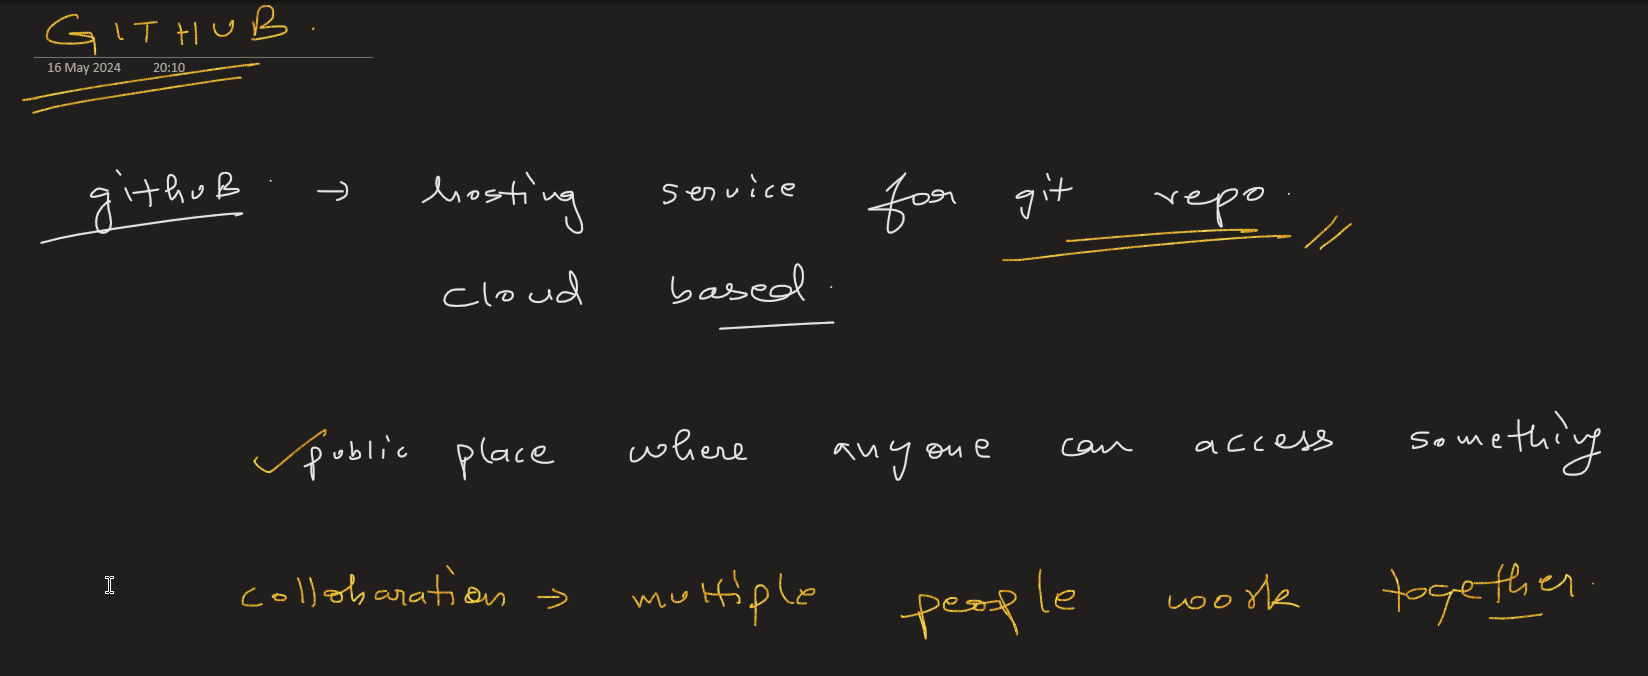 GITHUB.
16 May 2024 20:10
githuB. → hosting service for git repo.
cloud based.
public place where anyone can access something
colloharation → multiple people work together.